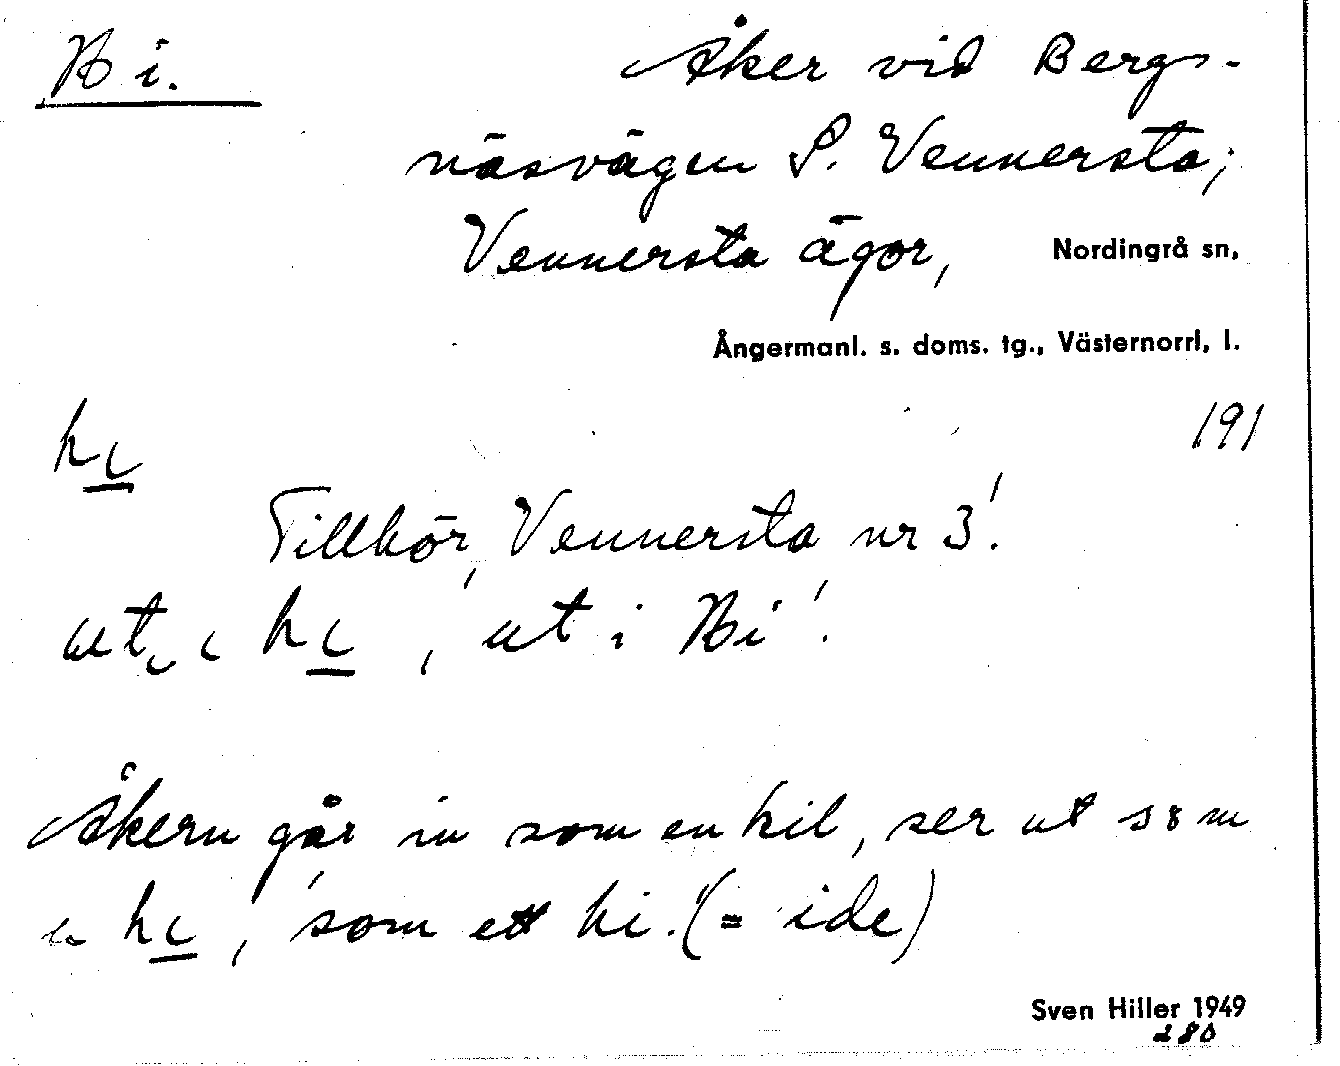 Hi.
Åker vid Bergs-
näsvägen S. Vennersta;
Vennersta ägor, Nordingrå sn,
Ångermanl. s. doms. tg., Västernorrl. l.
191
hi
Tillhör Vennersta nr 3!
ut i hi, ut i Hi!
Åkern går in som en kil, ser ut som
hi, som ett hi. (= ide)
Sven Hiller 1949
280